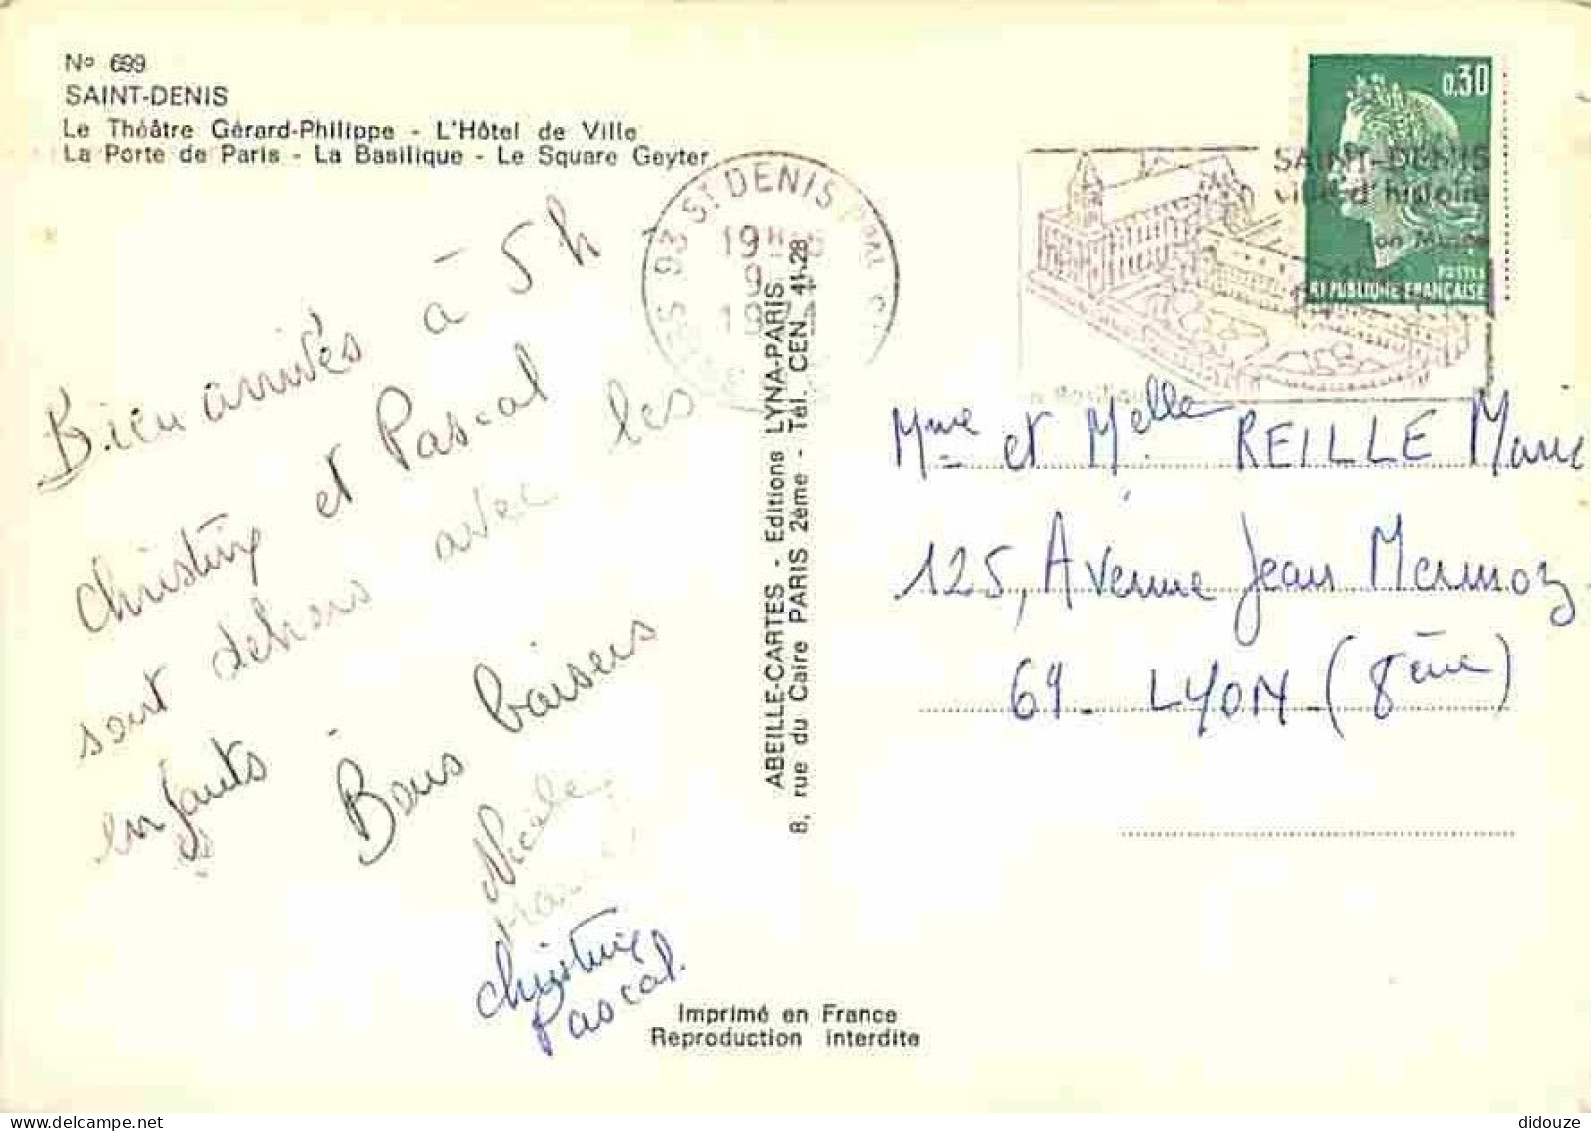 N° 699
SAINT-DENIS
Le Théâtre Gérard-Philippe - L'Hôtel de Ville
La Porte de Paris - La Basilique - Le Square Geyter
Bien arrivés à 5 h
Christine et Pascal
sont dehors avec les
enfants - Bons baisers
Nicole
Christine
Pascal.
93 ST DENIS PPAL
19H
9
ABEILLE-CARTES - Editions LYNA-PARIS
8, rue du Caire PARIS 2ème - Tél. CEN. 41-28
Imprimé en France
Reproduction interdite
0,30
POSTES
REPUBLIQUE FRANÇAISE
SAINT-DENIS
ville d'histoire
son Musée
Basilique
Mme et Melle REILLE Marie
125, Avenue Jean Mermoz
69 - LYON - (8ème)
delcampe.net
didouze